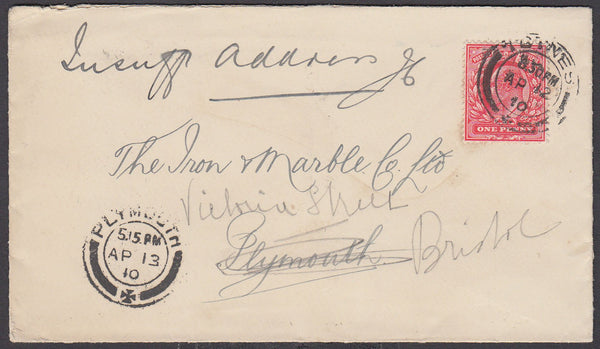 Insuff Address
8.30 PM
AP 12
10
ONE PENNY
The Iron & Marble Co. Ltd
Victoria Street
Plymouth Bristol
PLYMOUTH
5.15 PM
AP 13
10